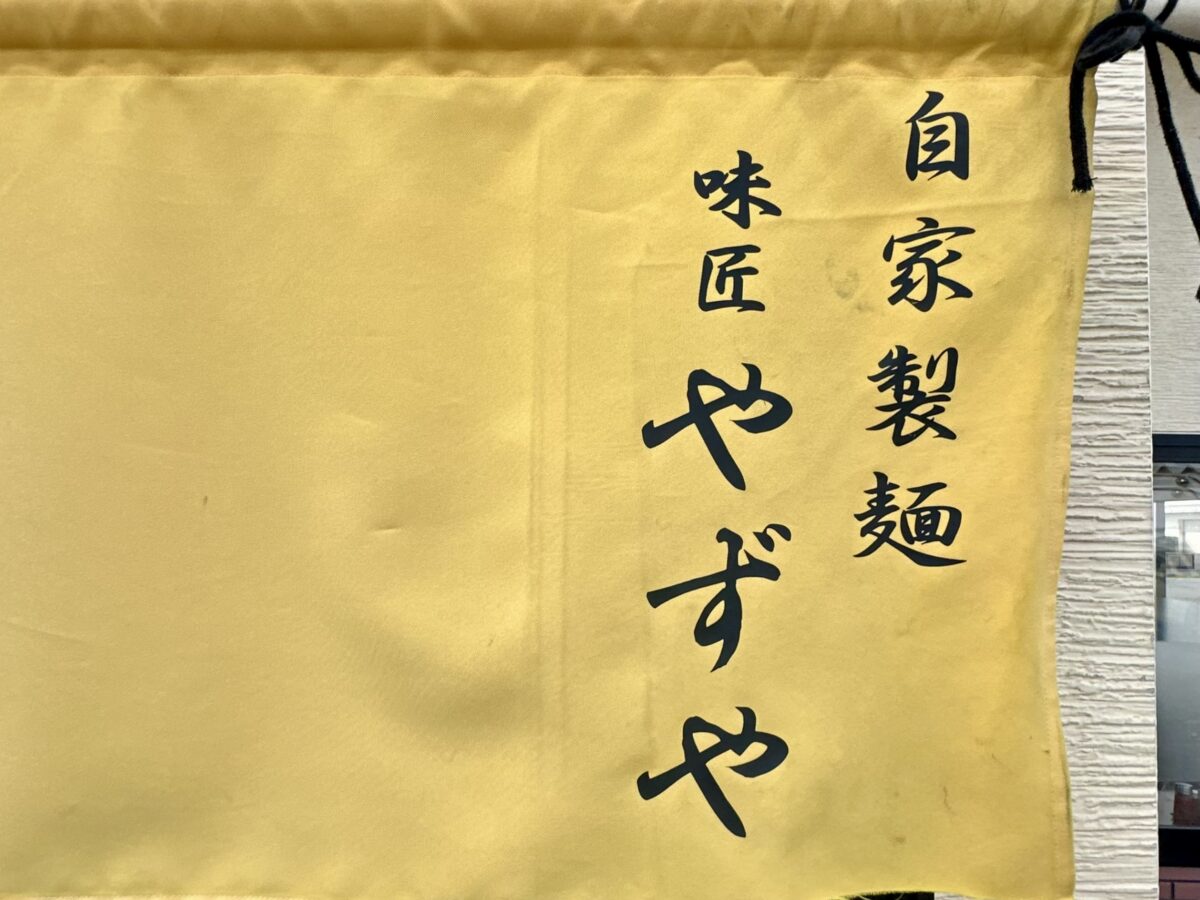 自家製麺
味匠やずや